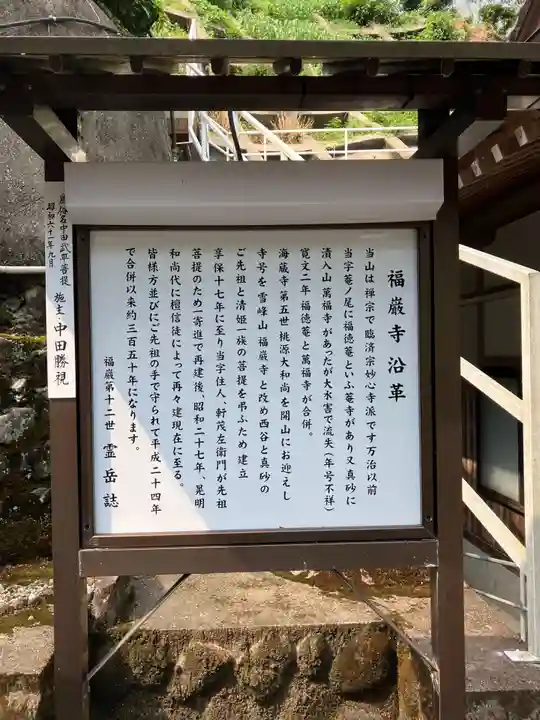 福巌寺沿革
当山は禅宗で臨済宗妙心寺派です万治以前
当字菴ノ尾に福徳菴といふ菴寺があり又真砂に
清入山 萬福寺 があったが大水害で流失(年号不祥)
寛文二年 福徳菴と萬福寺が合併。
海蔵寺第五世桃源大和尚を開山にお迎えし
寺号を 雪峰山 福巌寺 と改め西谷と真砂の
ご先祖と清姫一族の菩提を弔ふため 建立
享保十七年に至り当字住人、軒茂左衛門が先祖
菩提のため一寄進で再建後、昭和二十七年、晃明
和尚代に檀信徒によって再々建現在に至る。
皆様方並びにご先祖の手で守られて平成二十四年
で合併以来約三百五十年になります。
福巌第十二世 霊岳誌
中田武平菩提
昭和六十一年九月
施主 中田勝視